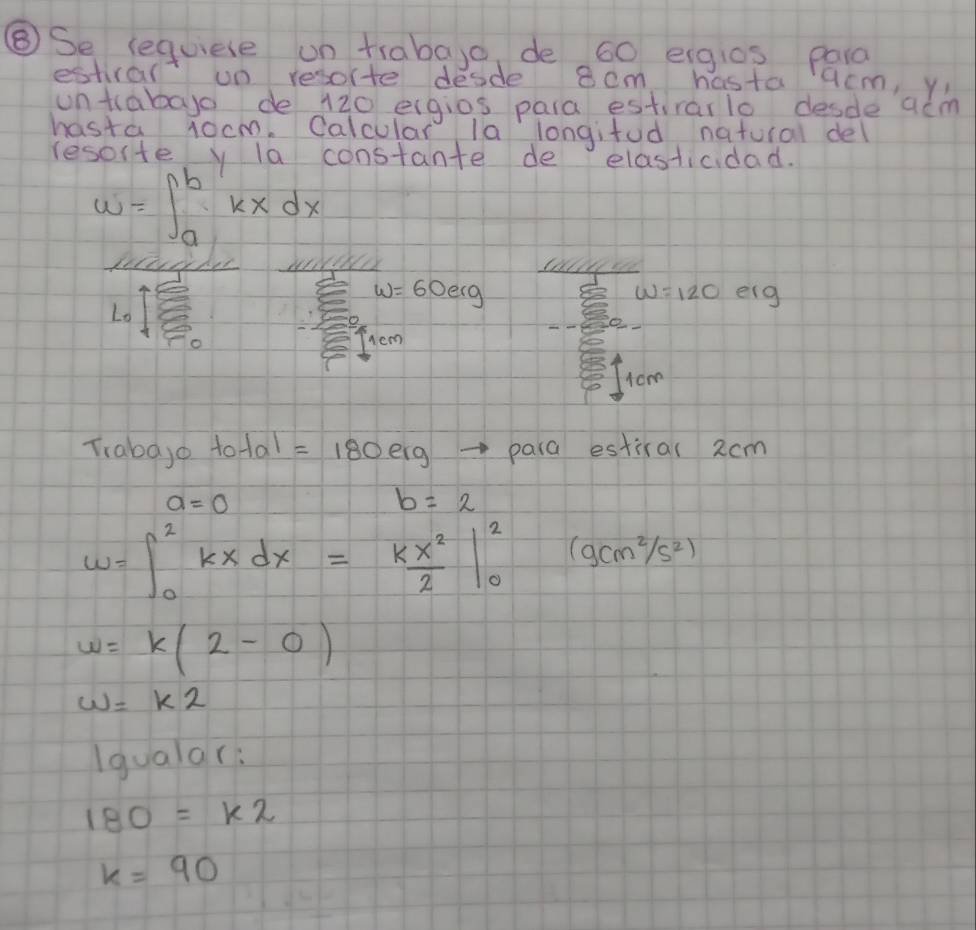 ⑧ Se requiere un trabajo de 60 ergios para
estirar un resorte desde 8cm hasta 9cm, y,
un trabajo de 120 ergios para estirarlo desde 9cm
hasta 10cm. Calcular la longitud natural del
resorte y la constante de elasticidad.
w = ∫_a^b kx dx
L₀ 0
w = 60erg 0 1cm
w = 120 erg 0 1cm
Trabajo total = 180erg → para estirar 2cm
a = 0 b = 2
w = ∫_0^2 kx dx = kx²/2 |_0^2 (gcm²/s²)
w = k(2 - 0)
w = k2
Igualar:
180 = k2
k = 90